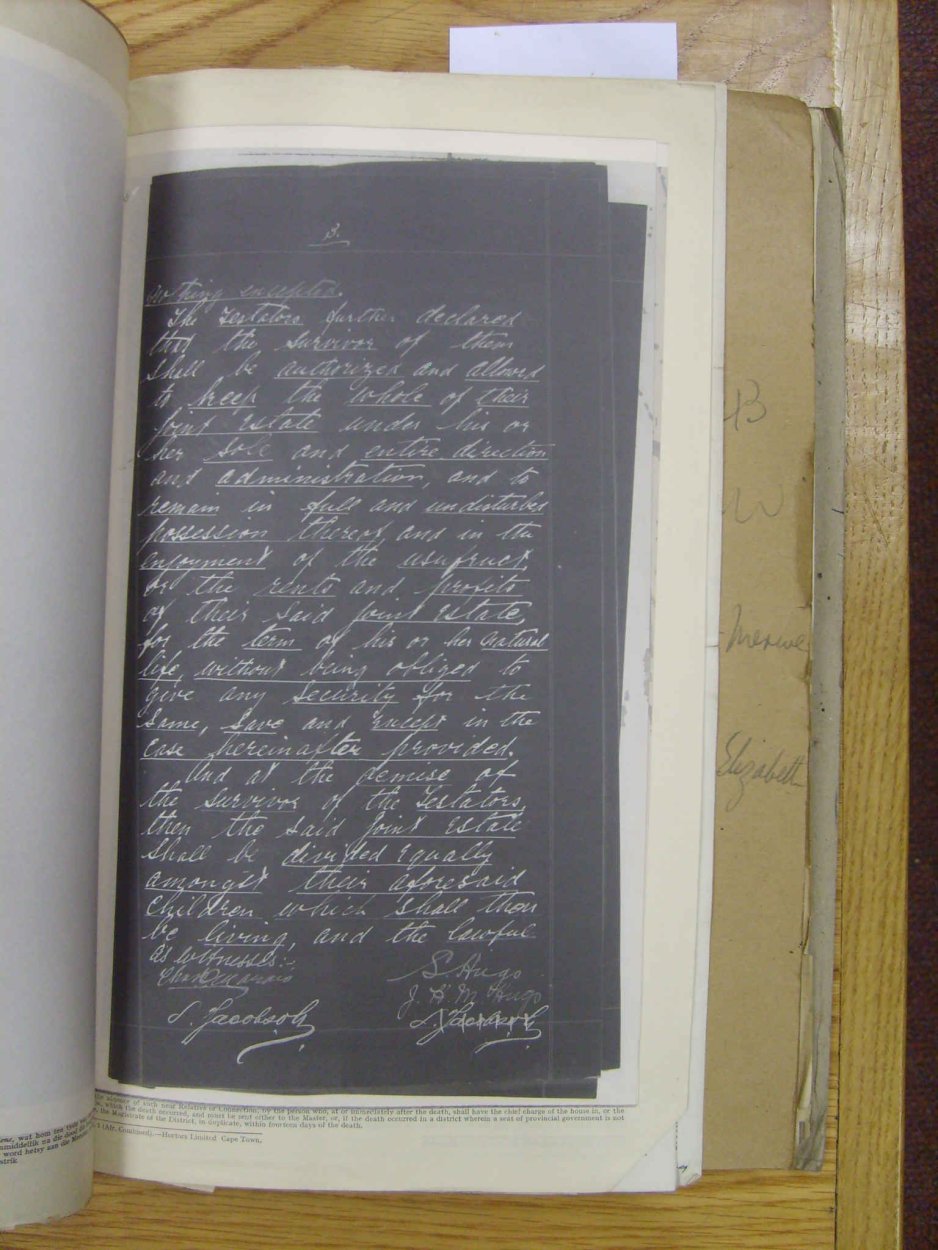 3.
nothing excepted.
The Testators further declared
that the survivor of them
shall be authorized and allowed
to keep the whole of their
joint Estate under his or
her sole and entire direction
and administration, and to
remain in full and undisturbed
possession thereof and in the
enjoyment of the usufruct,
or the rents and profits
of their said joint Estate,
for the term of his or her natural
life, without being obliged to
give any security for the
same, save and except in the
case hereinafter provided.
And at the demise of
the survivor of the Testators,
then the said joint Estate
shall be divided equally
amongst their aforesaid
children which shall then
be living, and the lawful
as witnesses:-
S. Hugo
J. H. M. Hugo
S. Jacobsohn
Merwe
Elizabeth
absence of such near Relative or Connection, by the person who, at or immediately after the death, shall have the chief charge of the house in, or the
which the death occurred, and must be sent either to the Master, or, if the death occurred in a district wherein a seat of provincial government is not
the Magistrate of the District, in duplicate, within fourteen days of the death.
(Afr. Continued).—Hortors Limited Cape Town.